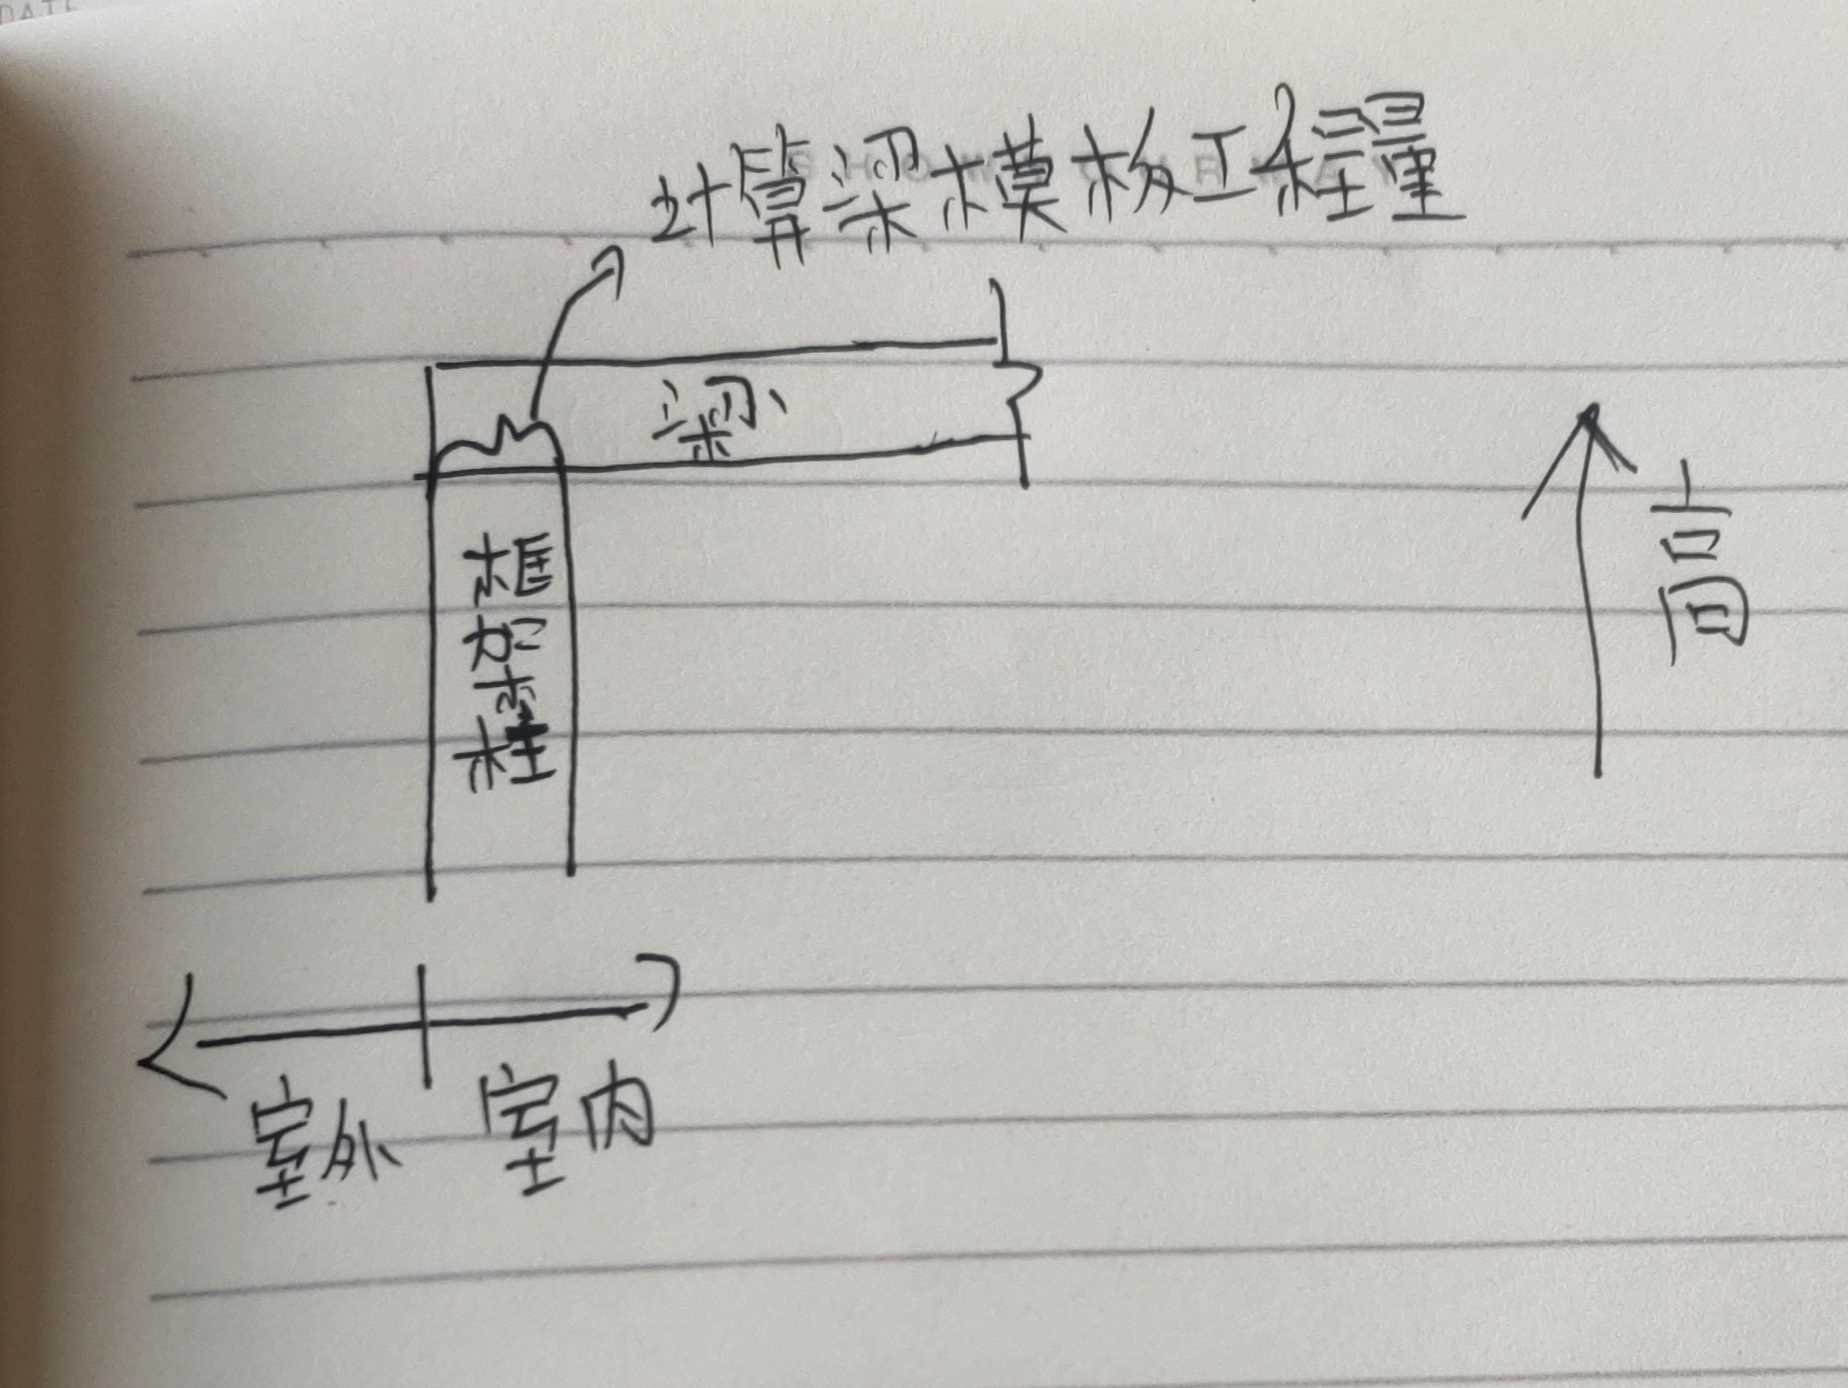 DATE
计算梁模板工程量
梁
框架柱
高
室外 室内